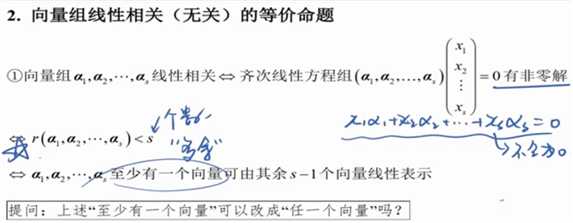 2. 向量组线性相关（无关）的等价命题
①向量组α₁,α₂,⋯,αₛ线性相关⇔齐次线性方程组(α₁,α₂,…,αₛ)(x₁ x₂ ⋮ xₛ)=0有非零解
⇔ r(α₁,α₂,⋯,αₛ)<s
个数
"多余"
x₁α₁+x₂α₂+⋯+xₛαₛ=0
不全为0
⇔ α₁,α₂,⋯,αₛ至少有一个向量可由其余s−1个向量线性表示
提问：上述“至少有一个向量”可以改成“任一个向量”吗？